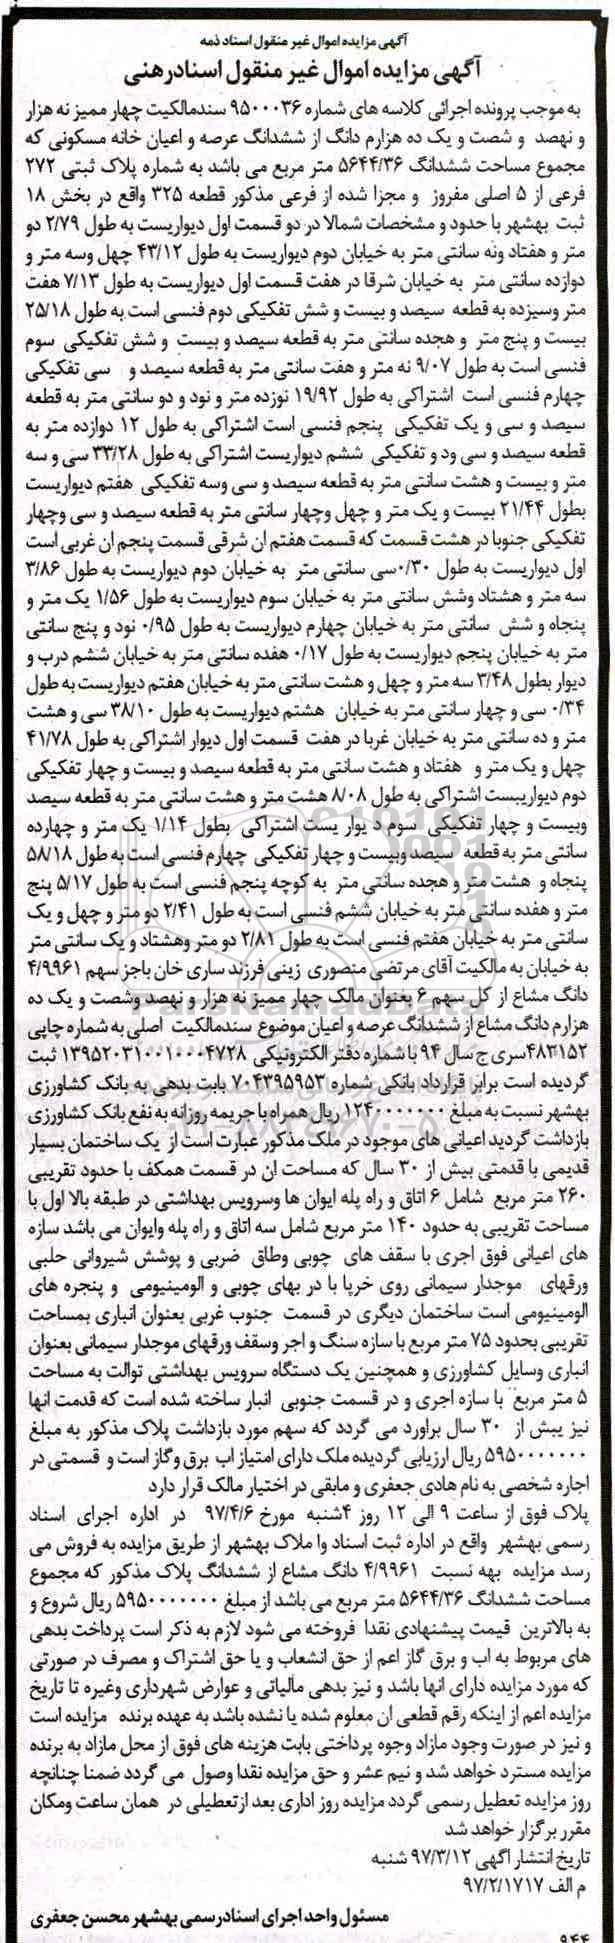 آگهی مزایده اموال غیر منقول اسناد ذمه
آگهی مزایده اموال غیر منقول اسنادرهنی
به موجب پرونده اجرائی کلاسه های شماره ۹۵۰۰۰۳۶ سندمالکیت چهار ممیز نه هزار
و نهصد و شصت و یک ده هزارم دانگ از ششدانگ عرصه و اعیان خانه مسکونی که
مجموع مساحت ششدانگ ۵۶۴۴/۳۶ متر مربع می باشد به شماره پلاک ثبتی ۲۷۲
فرعی از ۵ اصلی مفروز و مجزا شده از فرعی مذکور قطعه ۳۲۵ واقع در بخش ۱۸
ثبت بهشهر با حدود و مشخصات شمالا در دو قسمت اول دیواریست به طول ۲/۷۹ دو
متر و هفتاد ونه سانتی متر به خیابان دوم دیواریست به طول ۴۳/۱۲ چهل وسه متر و
دوازده سانتی متر به خیابان شرقا در هفت قسمت اول دیواریست به طول ۷/۱۳ هفت
متر وسیزده به قطعه سیصد و بیست و شش تفکیکی دوم فنسی است به طول ۲۵/۱۸
بیست و پنج متر و هجده سانتی متر به قطعه سیصد و بیست و شش تفکیکی سوم
فنسی است به طول ۹/۰۷ نه متر و هفت سانتی متر به قطعه سیصد و سی تفکیکی
چهارم فنسی است اشتراکی به طول ۱۹/۹۲ نوزده متر و نود و دو سانتی متر به قطعه
سیصد و سی و یک تفکیکی پنجم فنسی است اشتراکی به طول ۱۲ دوازده متر به
قطعه سیصد و سی ود و تفکیکی ششم دیواریست اشتراکی به طول ۳۳/۲۸ سی و سه
متر و بیست و هشت سانتی متر به قطعه سیصد و سی وسه تفکیکی هفتم دیواریست
بطول ۲۱/۴۴ بیست و یک متر و چهل وچهار سانتی متر به قطعه سیصد و سی وچهار
تفکیکی جنوبا در هشت قسمت که قسمت هفتم ان شرقی قسمت پنجم ان غربی است
اول دیواریست به طول ۰/۳۰سی سانتی متر به خیابان دوم دیواریست به طول ۳/۸۶
سه متر و هشتاد وشش سانتی متر به خیابان سوم دیواریست به طول ۱/۵۶ یک متر و
پنجاه و شش سانتی متر به خیابان چهارم دیواریست به طول ۰/۹۵ نود و پنج سانتی
متر به خیابان پنجم دیواریست به طول ۰/۱۷ هفده سانتی متر به خیابان ششم درب و
دیوار بطول ۳/۴۸ سه متر و چهل و هشت سانتی متر به خیابان هفتم دیواریست به طول
۰/۳۴ سی و چهار سانتی متر به خیابان هشتم دیواریست به طول ۳۸/۱۰ سی و هشت
متر و ده سانتی متر به خیابان غربا در هفت قسمت اول دیوار اشتراکی به طول ۴۱/۷۸
چهل و یک متر و هفتاد و هشت سانتی متر به قطعه سیصد و بیست و چهار تفکیکی
دوم دیواریست اشتراکی به طول ۸/۰۸ هشت متر و هشت سانتی متر به قطعه سیصد
وبیست و چهار تفکیکی سوم د یوار یست اشتراکی بطول ۱/۱۴ یک متر و چهارده
سانتی متر به قطعه سیصد وبیست و چهار تفکیکی چهارم فنسی است به طول ۵۸/۱۸
پنجاه و هشت متر و هجده سانتی متر به کوچه پنجم فنسی است به طول ۵/۱۷ پنج
متر و هفده سانتی متر به خیابان ششم فنسی است به طول ۲/۴۱ دو متر و چهل و یک
سانتی متر به خیابان هفتم فنسی است به طول ۲/۸۱ دو متر وهشتاد و یک سانتی متر
به خیابان به مالکیت آقای مرتضی منصوری زینی فرزند ساری خان باجز سهم ۴/۹۹۶۱
دانگ مشاع از کل سهم ۶ بعنوان مالک چهار ممیز نه هزار و نهصد وشصت و یک ده
هزارم دانگ مشاع از ششدانگ عرصه و اعیان موضوع سندمالکیت اصلی به شماره چاپی
۴۸۳۱۵۲سری ج سال ۹۴ با شماره دفتر الکترونیکی ۱۳۹۵۲۰۳۱۰۰۱۰۰۰۴۷۲۸ ثبت
گردیده است برابر قرارداد بانکی شماره ۷۰۴۳۹۵۹۵۳ بابت بدهی به بانک کشاورزی
بهشهر نسبت به مبلغ ۱۲۴۰۰۰۰۰۰۰ ریال همراه با جریمه روزانه به نفع بانک کشاورزی
بازداشت گردید اعیانی های موجود در ملک مذکور عبارت است از یک ساختمان بسیار
قدیمی با قدمتی بیش از ۳۰ سال که مساحت ان در قسمت همکف با حدود تقریبی
۲۶۰ متر مربع شامل ۶ اتاق و راه پله ایوان ها وسرویس بهداشتی در طبقه بالا اول با
مساحت تقریبی به حدود ۱۴۰ متر مربع شامل سه اتاق و راه پله وایوان می باشد سازه
های اعیانی فوق اجری با سقف های چوبی وطاق ضربی و پوشش شیروانی حلبی
ورقهای موجدار سیمانی روی خرپا با در بهای چوبی و الومینیومی و پنجره های
الومینیومی است ساختمان دیگری در قسمت جنوب غربی بعنوان انباری بمساحت
تقریبی بحدود ۷۵ متر مربع با سازه سنگ و اجر وسقف ورقهای موجدار سیمانی بعنوان
انباری وسایل کشاورزی و همچنین یک دستگاه سرویس بهداشتی توالت به مساحت
۵ متر مربع با سازه اجری و در قسمت جنوبی انبار ساخته شده است که قدمت انها
نیز بیش از ۳۰ سال براورد می گردد که سهم مورد بازداشت پلاک مذکور به مبلغ
۵۹۵۰۰۰۰۰۰۰ ریال ارزیابی گردیده ملک دارای امتیاز اب برق وگاز است و قسمتی در
اجاره شخصی به نام هادی جعفری و مابقی در اختیار مالک قرار دارد
پلاک فوق از ساعت ۹ الی ۱۲ روز ۴شنبه مورخ ۹۷/۴/۶ در اداره اجرای اسناد
رسمی بهشهر واقع در اداره ثبت اسناد وا ملاک بهشهر از طریق مزایده به فروش می
رسد مزایده بهه نسبت ۴/۹۹۶۱ دانگ مشاع از ششدانگ پلاک مذکور که مجموع
مساحت ششدانگ ۵۶۴۴/۳۶ متر مربع می باشد از مبلغ ۵۹۵۰۰۰۰۰۰۰ ریال شروع و
به بالاترین قیمت پیشنهادی نقدا فروخته می شود لازم به ذکر است پرداخت بدهی
های مربوط به اب و برق گاز اعم از حق انشعاب و یا حق اشتراک و مصرف در صورتی
که مورد مزایده دارای انها باشد و نیز بدهی مالیاتی و عوارض شهرداری وغیره تا تاریخ
مزایده اعم از اینکه رقم قطعی ان معلوم شده یا نشده باشد به عهده برنده مزایده است
و نیز در صورت وجود مازاد وجوه پرداختی بابت هزینه های فوق از محل مازاد به برنده
مزایده مسترد خواهد شد و نیم عشر و حق مزایده نقدا وصول می گردد ضمنا چنانچه
روز مزایده تعطیل رسمی گردد مزایده روز اداری بعد ازتعطیلی در همان ساعت ومکان
مقرر برگزار خواهد شد
تاریخ انتشار اگهی ۹۷/۳/۱۲ شنبه
م الف ۹۷/۲/۱۷۱۷
مسئول واحد اجرای اسنادرسمی بهشهر محسن جعفری
۹۴۴